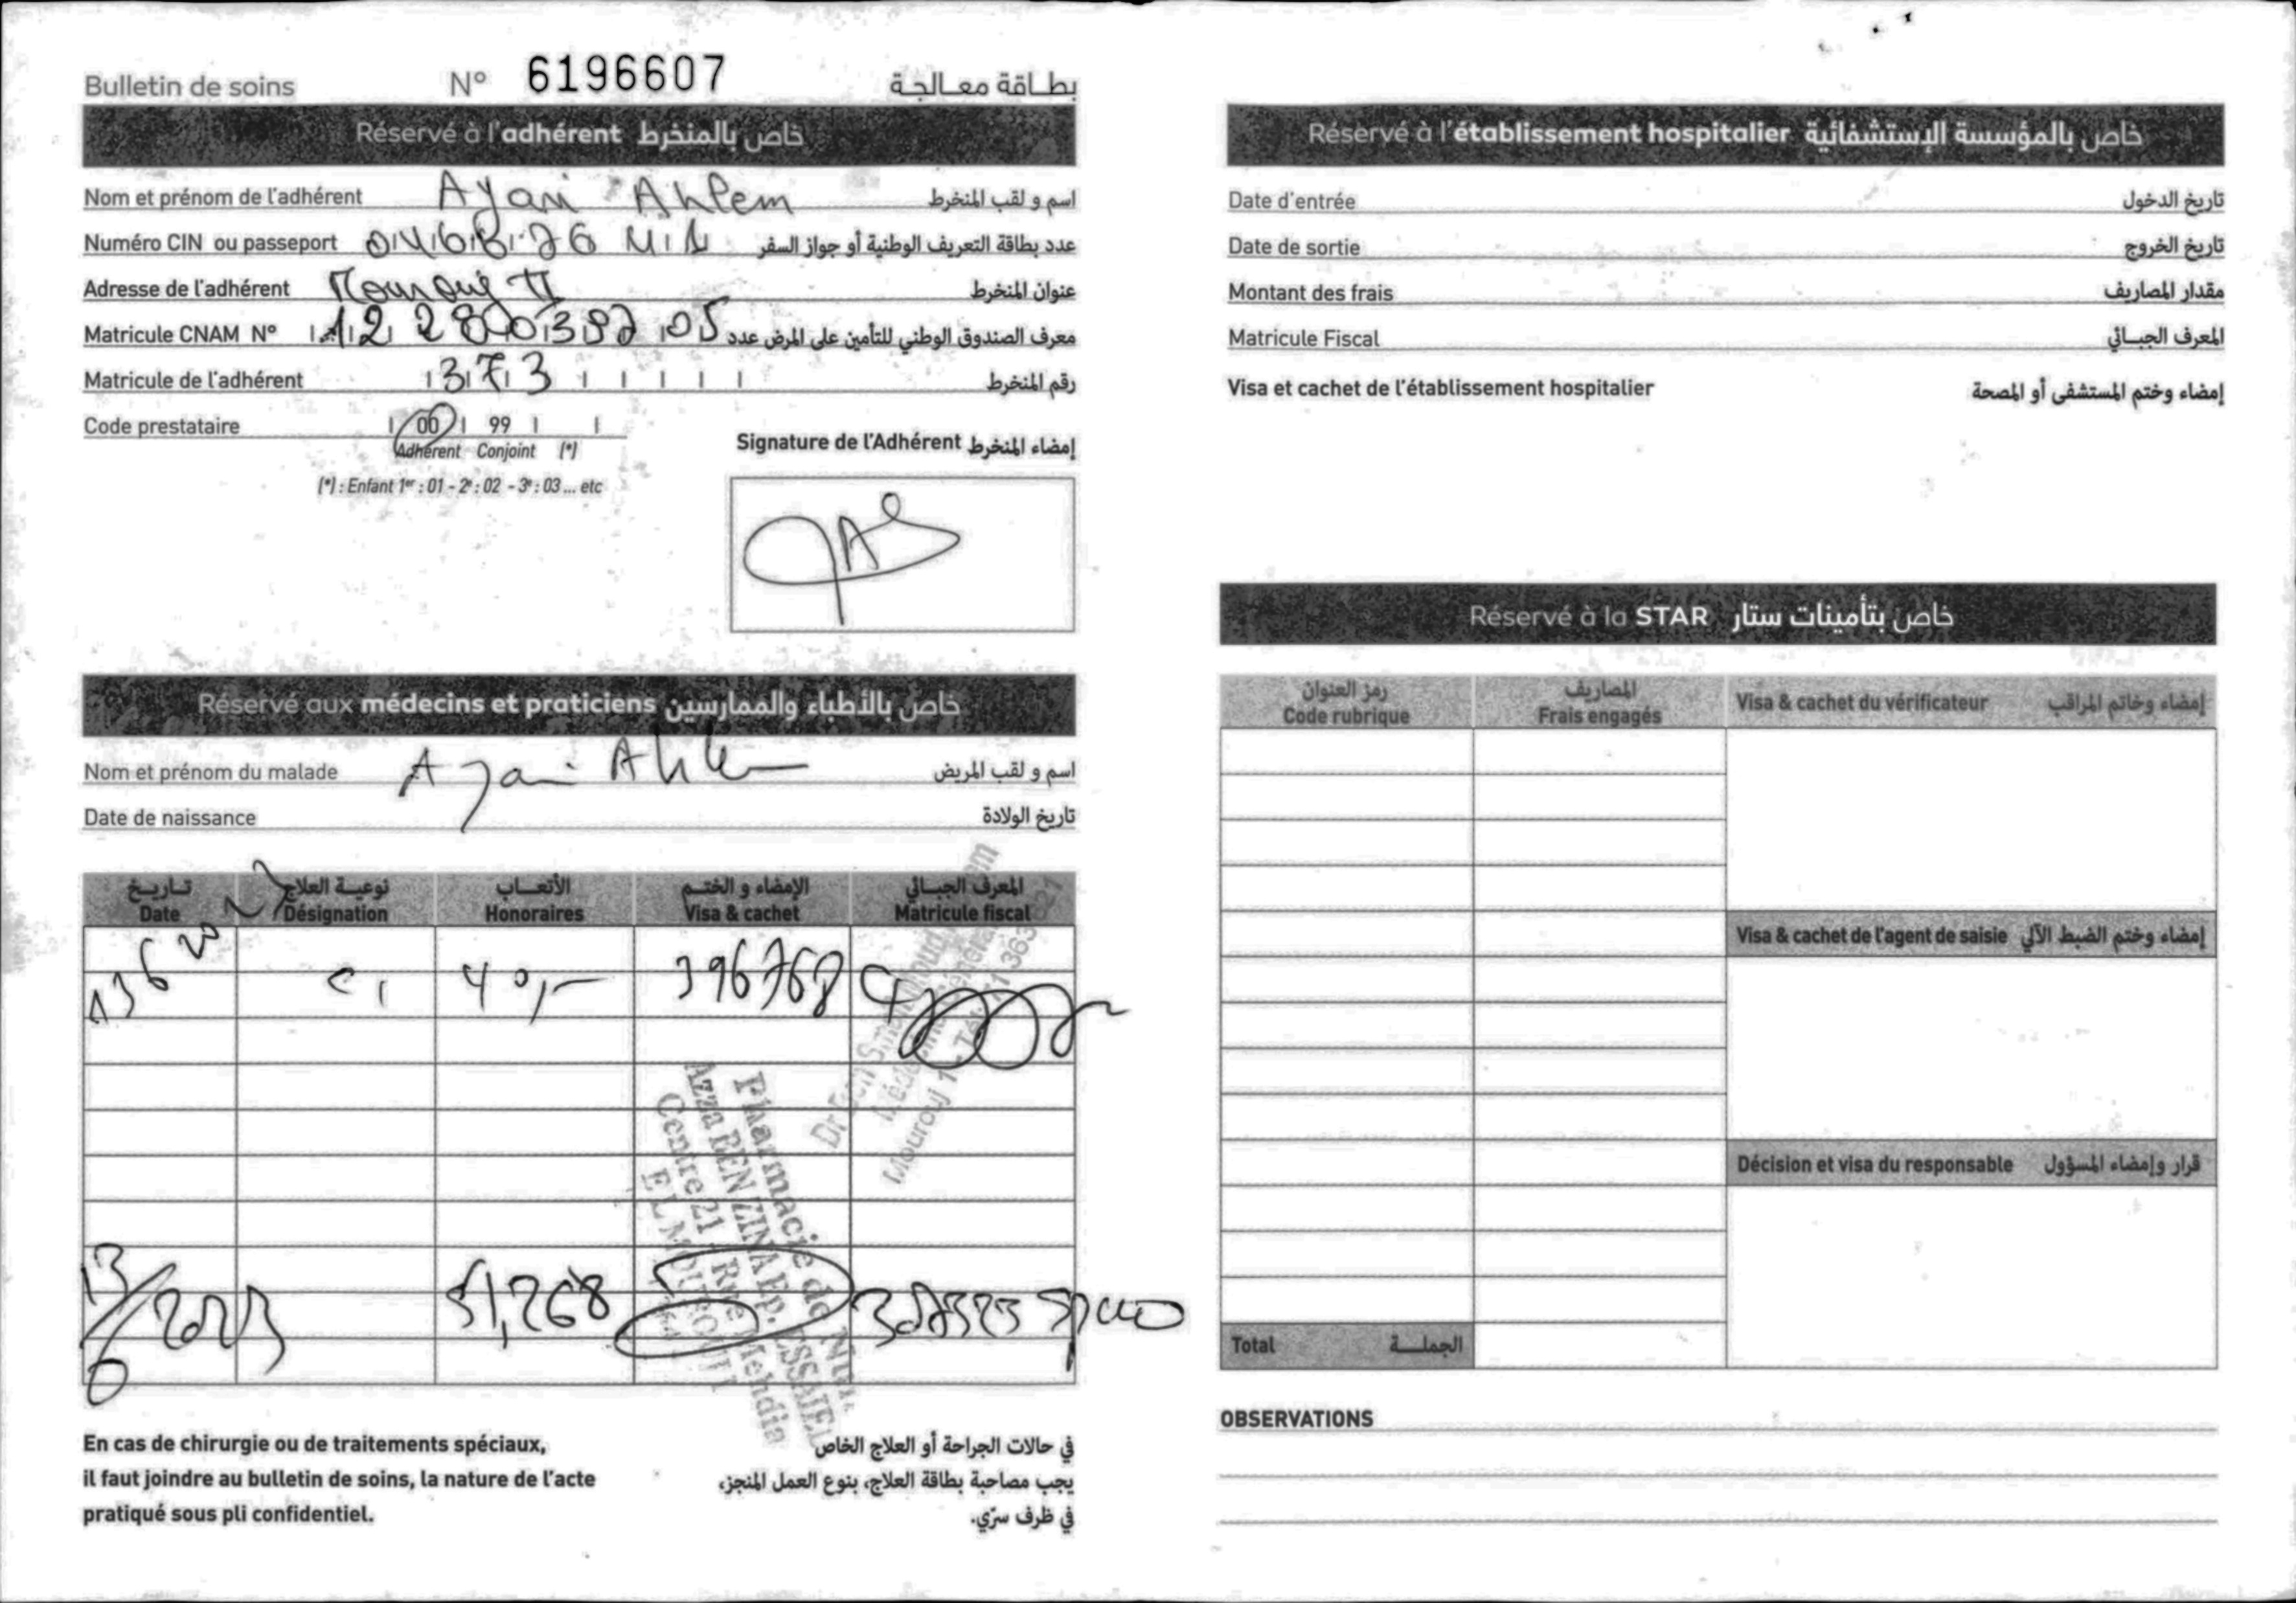 Bulletin de soins N° 6196607 بطاقة معالجة
Réservé à l'adhérent خاص بالمنخرط
Nom et prénom de l'adhérent Ayari Ahlem اسم و لقب المنخرط
Numéro CIN ou passeport عدد بطاقة التعريف الوطنية أو جواز السفر
Adresse de l'adhérent Mourouj II عنوان المنخرط
Matricule CNAM N° معرف الصندوق الوطني للتأمين على المرض عدد
Matricule de l'adhérent 373 رقم المنخرط
Code prestataire 00 99
Adhérent Conjoint (*)
(*) : Enfant 1er : 01 - 2e : 02 - 3e : 03 ... etc
Signature de l'Adhérent إمضاء المنخرط
Réservé aux médecins et praticiens خاص بالأطباء والممارسين
Nom et prénom du malade Ayari Ahlem اسم و لقب المريض
Date de naissance تاريخ الولادة
تاريخ نوعية العلاج الأتعاب الإمضاء و الختم المعرف الجبائي
Date Désignation Honoraires Visa & cachet Matricule fiscal
13 6 2023 c1 40,- 396768
Médecine Générale
Mourouj 1
Pharmacie de
Azza BEN ZINA Ep. ESSAIEL
Centre 21 Rue Mehdia
EL MOUROUJ
13/6/2023 51,268
En cas de chirurgie ou de traitements spéciaux,
il faut joindre au bulletin de soins, la nature de l'acte
pratiqué sous pli confidentiel.
في حالات الجراحة أو العلاج الخاص
يجب مصاحبة بطاقة العلاج، بنوع العمل المنجز،
في ظرف سرّي.
Réservé à l'établissement hospitalier خاص بالمؤسسة الإستشفائية
Date d'entrée تاريخ الدخول
Date de sortie تاريخ الخروج
Montant des frais مقدار المصاريف
Matricule Fiscal المعرف الجبائي
Visa et cachet de l'établissement hospitalier إمضاء وختم المستشفى أو المصحة
Réservé à la STAR خاص بتأمينات ستار
رمز العنوان المصاريف
Code rubrique Frais engagés Visa & cachet du vérificateur إمضاء وخاتم المراقب
Visa & cachet de l'agent de saisie إمضاء وختم الضبط الآلي
Décision et visa du responsable قرار وإمضاء المسؤول
Total الجملة
OBSERVATIONS